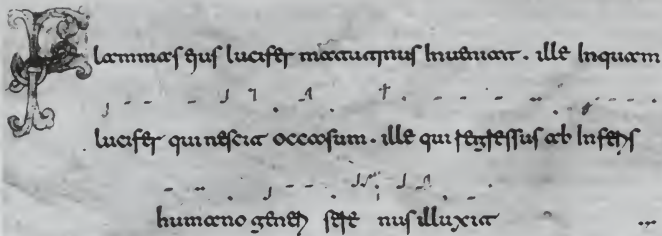 Flammas eius lucifer matutinus inueniat. ille inquam
lucifer qui nescit occasum. ille qui regressus ab inferis
humano generi sere nus illuxit